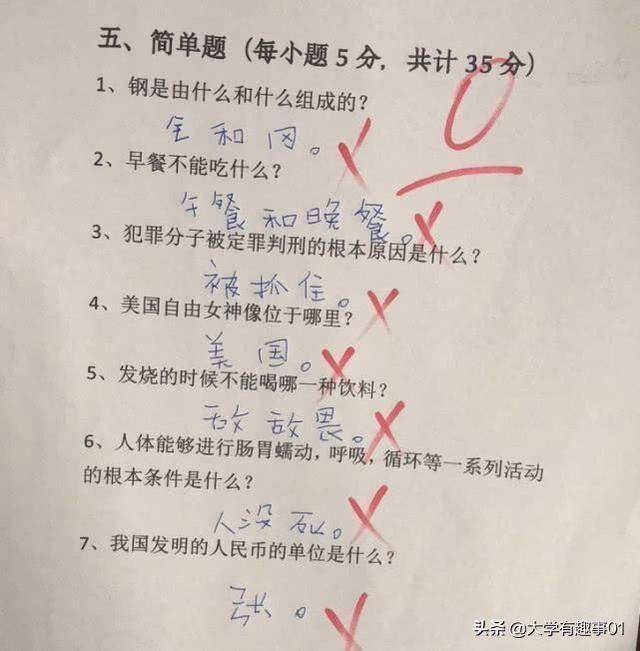 五、简单题（每小题5分，共计35分）
0
1、钢是由什么和什么组成的？
全和冈。
2、早餐不能吃什么？
午餐和晚餐。
3、犯罪分子被定罪判刑的根本原因是什么？
被抓住。
4、美国自由女神像位于哪里？
美国。
5、发烧的时候不能喝哪一种饮料？
敌敌畏。
6、人体能够进行肠胃蠕动，呼吸，循环等一系列活动
的根本条件是什么？
人没死。
7、我国发明的人民币的单位是什么？
张。
头条 @大学有趣事01